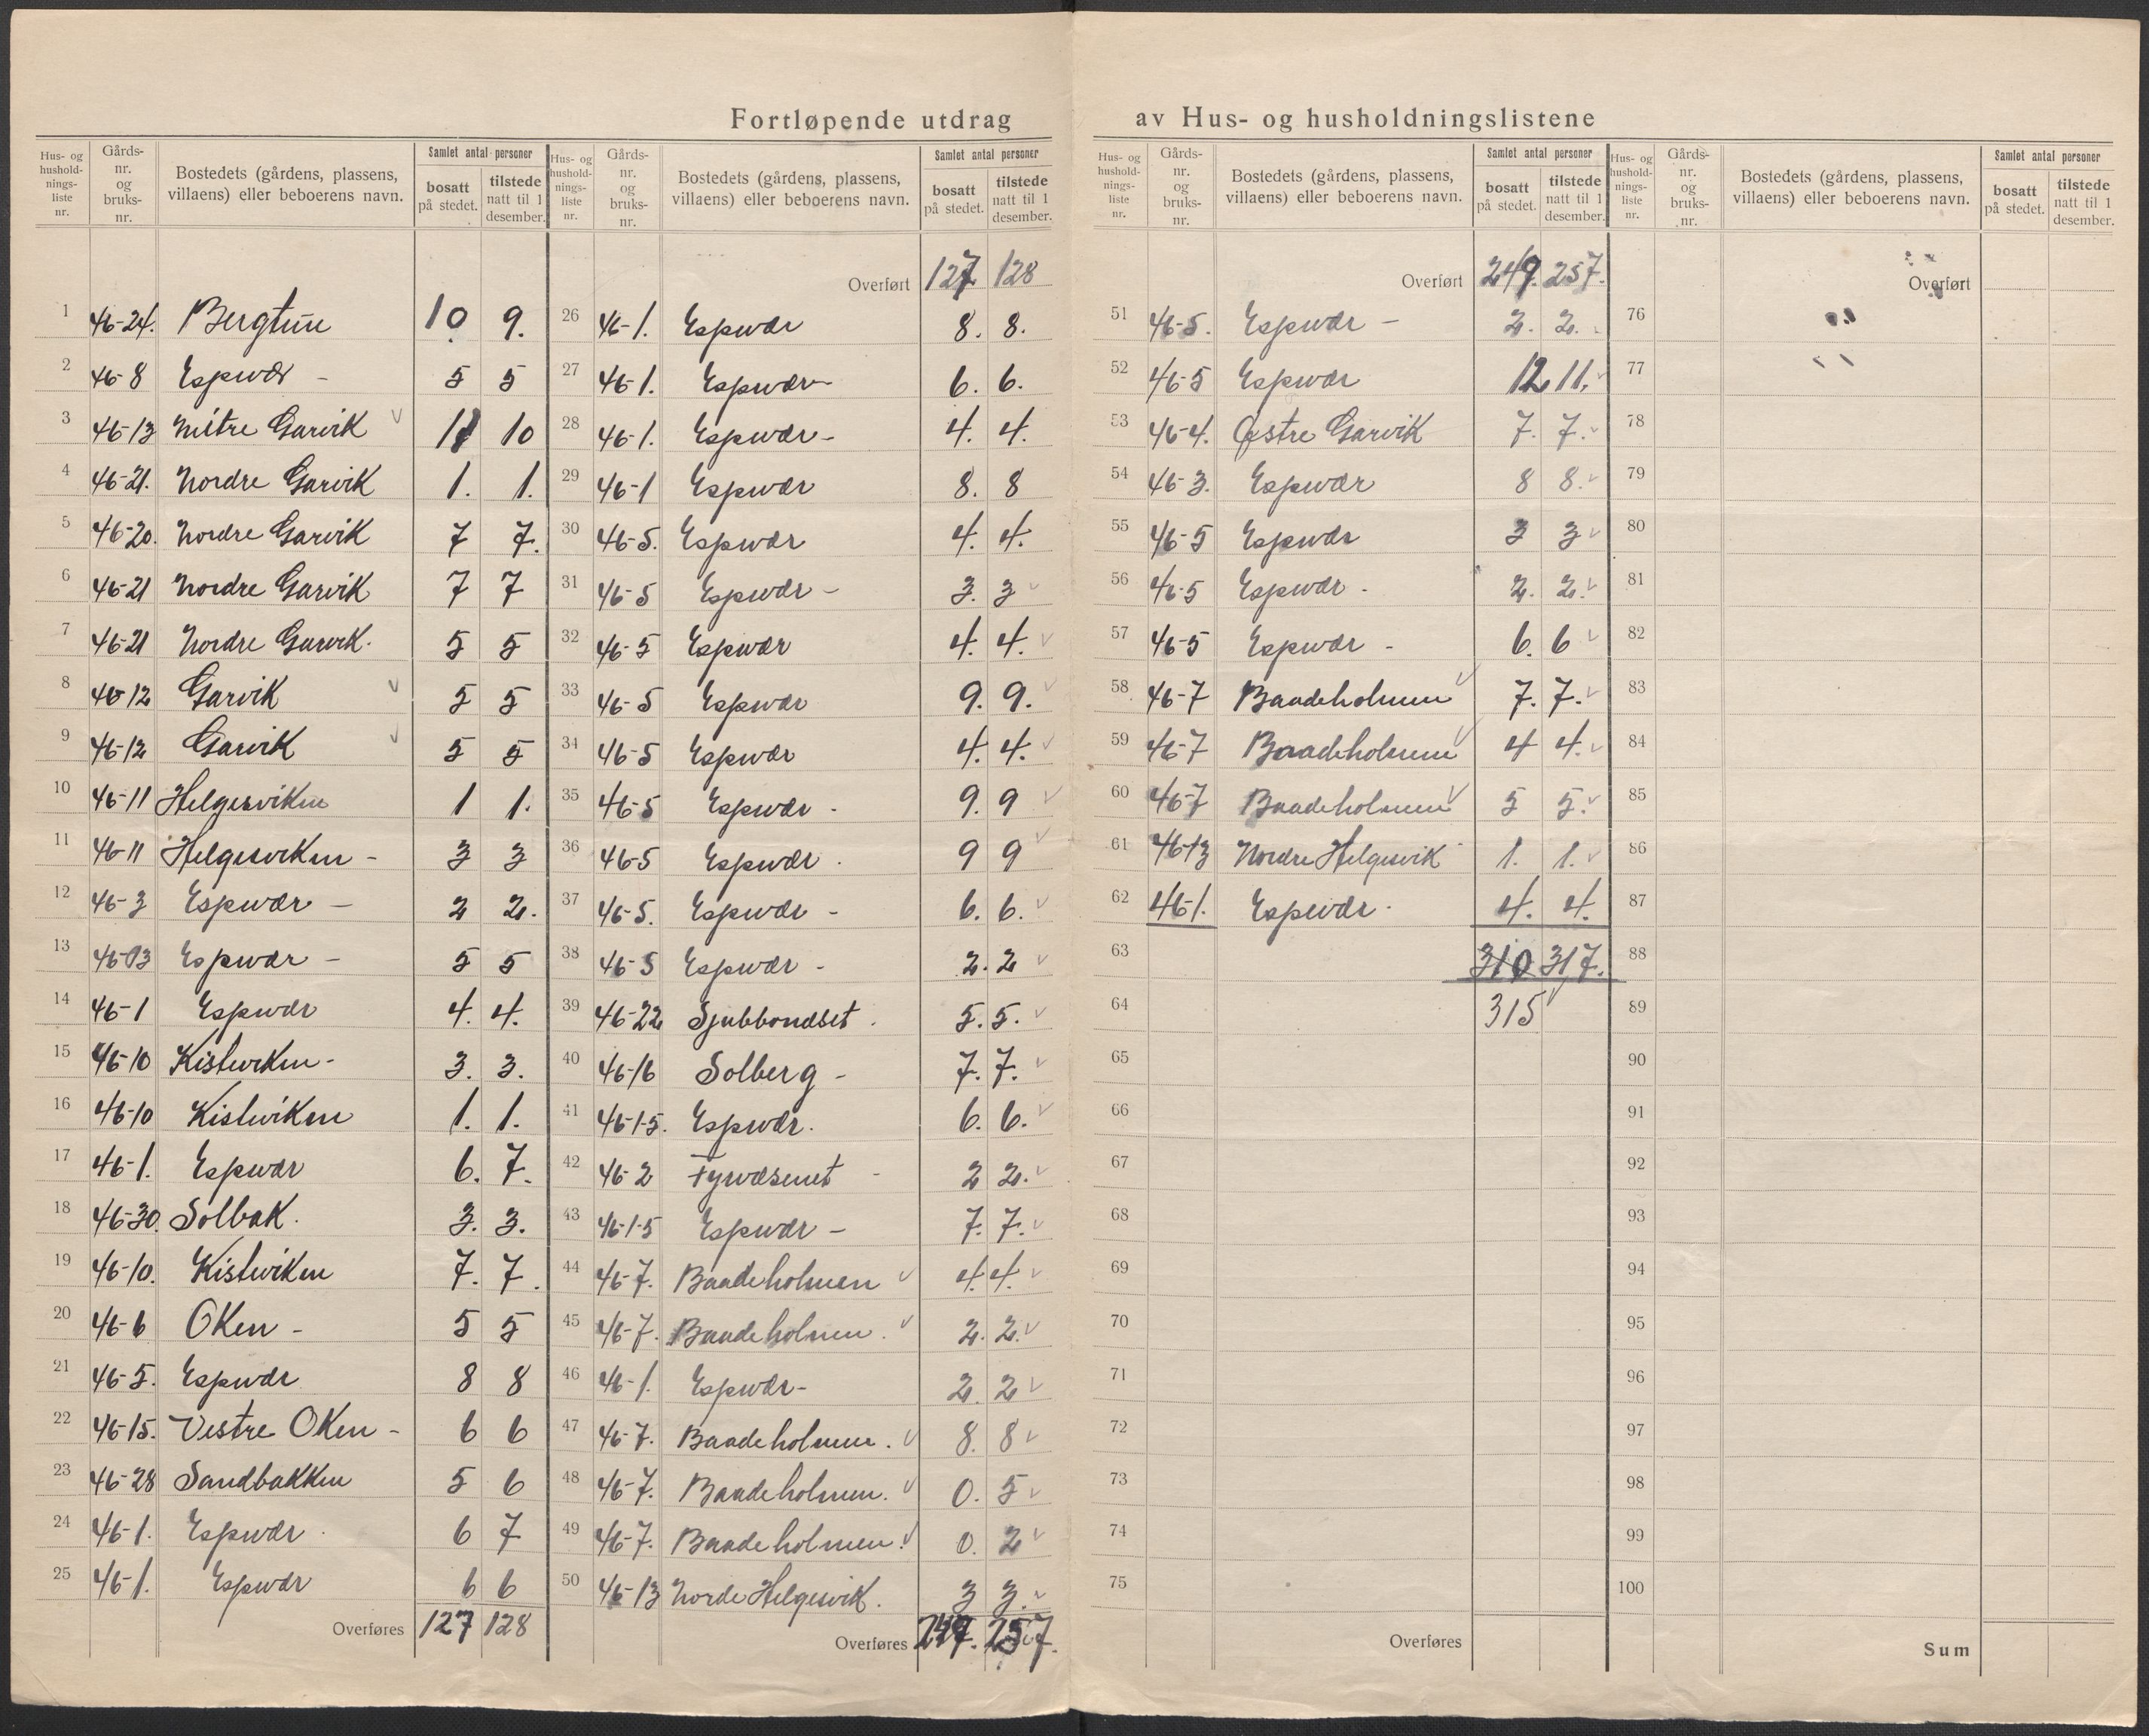 Fortløpende utdrag av Hus- og husholdningslistene
Hus- og hushold-nings-liste nr. | Gårds-nr. og bruks-nr. | Bostedets (gårdens, plassens, villaens) eller beboerens navn. | Samlet antal personer | bosatt på stedet. | tilstede natt til 1 desember.
1 46-24. Bergtun 10 9.
2 46-8 Espevær - 5 5
3 46-13 Mitre Garvik 11 10
4 46-21. Nordre Garvik 1. 1.
5 46-20. Nordre Garvik 7 7.
6 46-21 Nordre Garvik 7 7
7 46-21 Nordre Garvik. 5 5
8 46-12 Garvik 5 5
9 46-12 Garvik 5 5
10 46-11 Helgesviken 1 1.
11 46-11 Helgesviken - 3 3
12 46-3 Espevær - 2 2.
13 46-3 Espevær - 5 5
14 46-1 Espevær 4. 4.
15 46-10 Kistviken - 3. 3.
16 46-10 Kistviken 1. 1.
17 46-1. Espevær 6. 7.
18 46-30. Solbak. 3. 3.
19 46-10. Kistviken 7. 7.
20 46-6 Oken - 5 5
21 46-5. Espevær 8 8
22 46-15. Vestre Oken - 6 6
23 46-28 Sandbakken 5 6
24 46-1. Espevær 6 7
25 46-1. Espevær 6 6
Overføres 127 128
Hus- og hushold-nings-liste nr. | Gårds-nr. og bruks-nr. | Bostedets (gårdens, plassens, villaens) eller beboerens navn. | Samlet antal personer | bosatt på stedet. | tilstede natt til 1 desember.
Overført 127 128
26 46-1. Espevær 8. 8.
27 46-1. Espevær 6. 6.
28 46-1. Espevær - 4. 4.
29 46-1 Espevær 8. 8
30 46-5. Espevær 4. 4.
31 46-5 Espevær - 3. 3
32 46-5 Espevær 4. 4.
33 46-5 Espevær 9. 9.
34 46-5 Espevær 4. 4.
35 46-5 Espevær - 9. 9
36 46-5 Espevær . 9 9
37 46-5. Espevær - 6. 6.
38 46-5 Espevær - 2. 2
39 46-22 5. 5.
40 46-16 Solberg - 7. 7.
41 46-1-5. Espevær. 6. 6.
42 46-2 Fyrvæsenet 2 2.
43 46-1-5 Espevær - 7. 7.
44 46-7. Baadeholmen 4. 4.
45 46-7. Baadeholmen. 2. 2.
46 46-1. Espevær - 2. 2
47 46-7. Baadeholmen. 8. 8
48 46-7. Baadeholmen. 0. 5
49 46-7. Baadeholmen. 0. 2
50 46-13 Norde Helgesvik. 3 3.
Overføres 249. 257.
Hus- og hushold-nings-liste nr. | Gårds-nr. og bruks-nr. | Bostedets (gårdens, plassens, villaens) eller beboerens navn. | Samlet antal personer | bosatt på stedet. | tilstede natt til 1 desember.
Overført 249. 257.
51 46-5. Espevær - 2. 2.
52 46-5 Espevær 12 11.
53 46-4. Østre Garvik 7. 7.
54 46-3. Espevær 8 8.
55 46-5 Espevær 3 3
56 46-5 Espevær . 2. 2.
57 46-5 Espevær - 6. 6
58 46-7 Baadeholmen 7. 7.
59 46-7 Baadeholmen 4 4.
60 46-7 Baadeholmen 5 5.
61 46-13 Nordre Helgesvik 1. 1.
62 46-1. Espevær . 4. 4.
63 310 317.
64 315
65
66
67
68
69
70
71
72
73
74
75
Overføres
Hus- og hushold-nings-liste nr. | Gårds-nr. og bruks-nr. | Bostedets (gårdens, plassens, villaens) eller beboerens navn. | Samlet antal personer | bosatt på stedet. | tilstede natt til 1 desember.
Overført
76
77
78
79
80
81
82
83
84
85
86
87
88
89
90
91
92
93
94
95
96
97
98
99
100
Sum